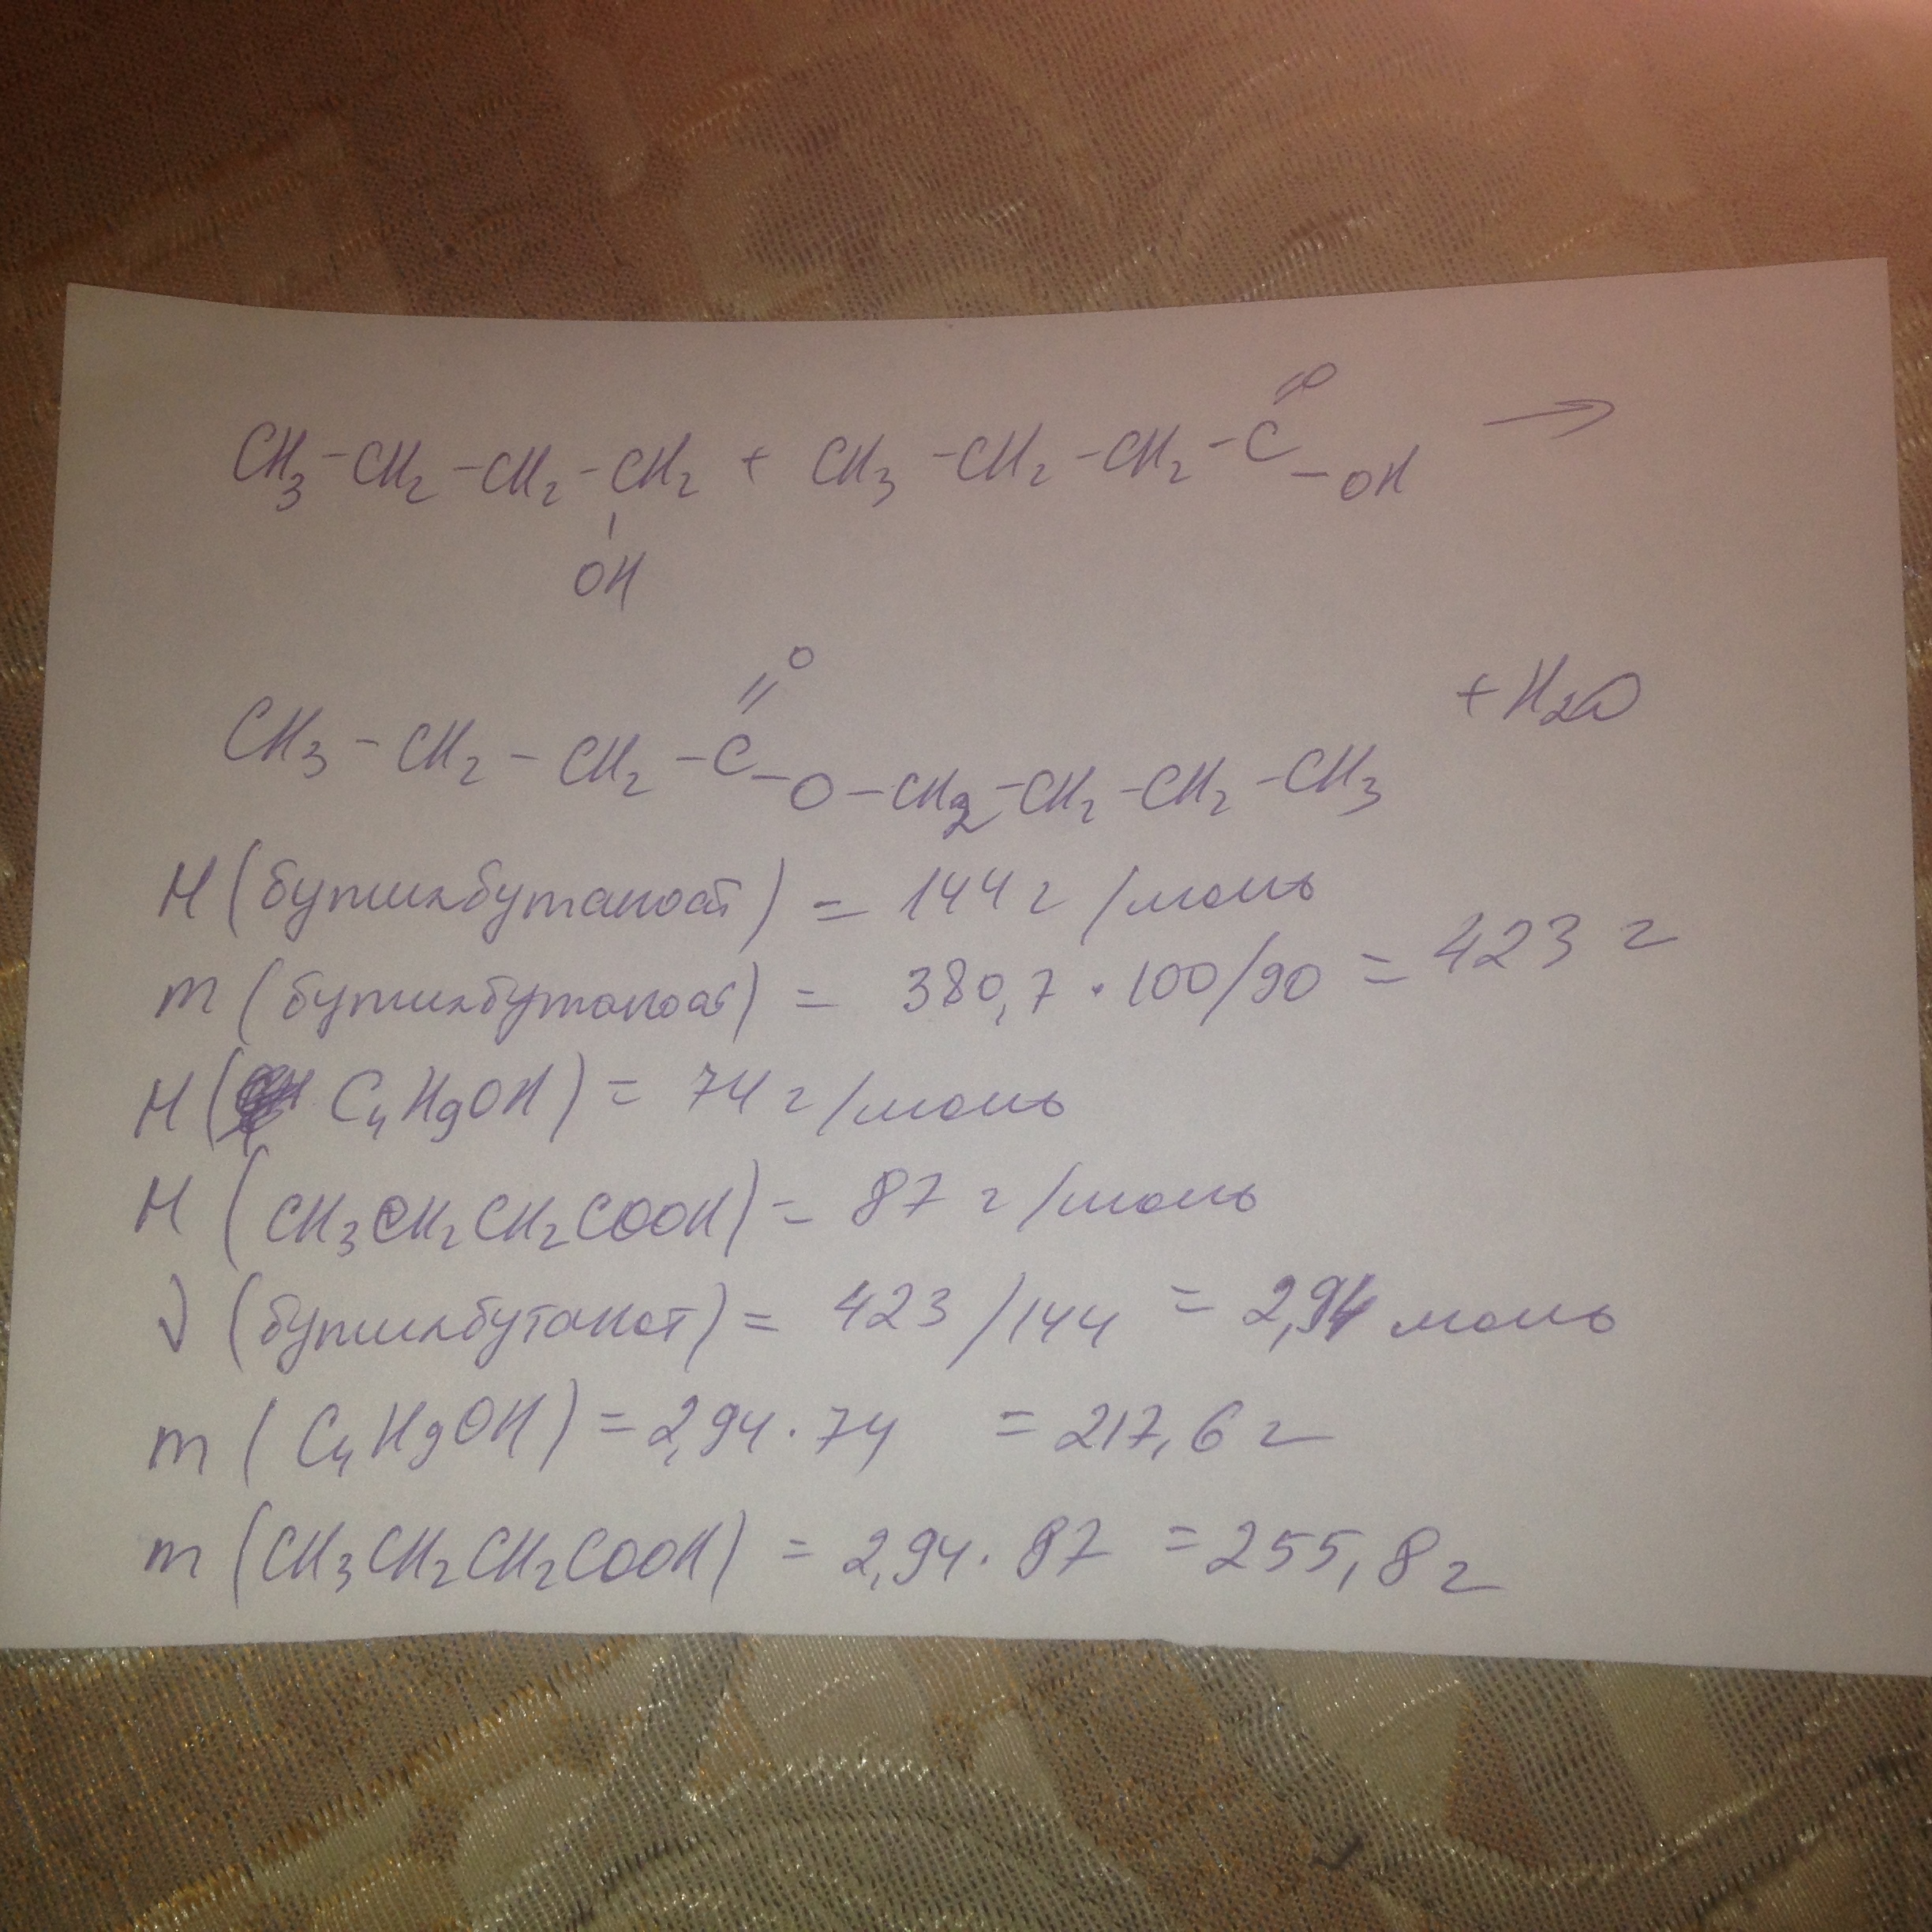 CH₃-CH₂-CH₂-CH₂ + CH₃-CH₂-CH₂-C-OH →
OH
=O
CH₃-CH₂-CH₂-C-O-CH₂-CH₂-CH₂-CH₃ + H₂O
=O
M(бутилбутаноат) = 144 г/моль
m(бутилбутаноат) = 380,7 · 100/90 = 423 г
M(C₄H₉OH) = 74 г/моль
M(CH₃CH₂CH₂COOH) = 87 г/моль
ν(бутилбутанот) = 423/144 = 2,94 моль
m(C₄H₉OH) = 2,94 · 74 = 217,6 г
m(CH₃CH₂CH₂COOH) = 2,94 · 87 = 255,8 г